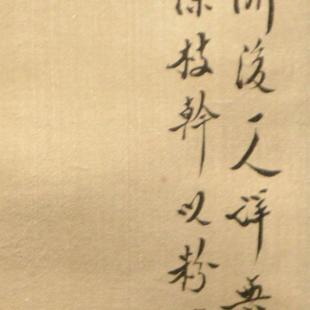 後一人詳
枝幹以粉